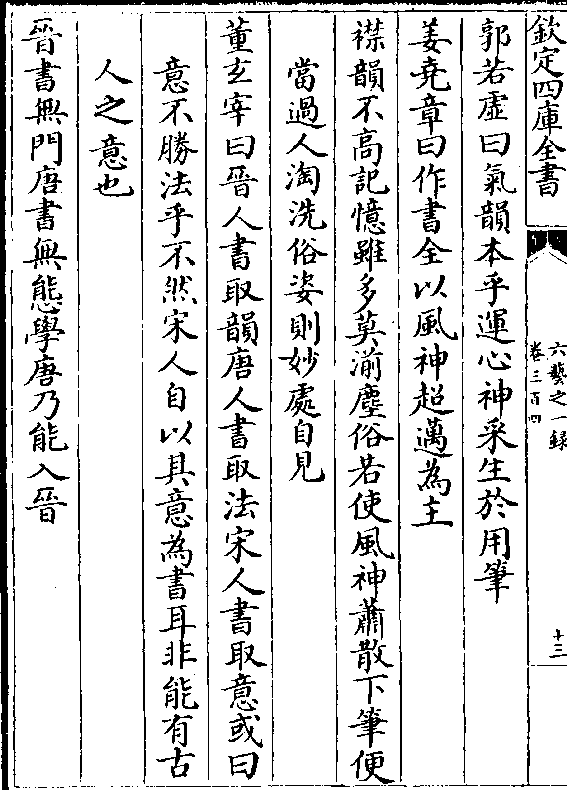 欽定四庫全書
六藝之一録
卷三百四
十三
郭若虛曰氣韻本乎運心神采生於用筆
姜堯章曰作書全以風神超邁為主
襟韻不高記憶雖多莫湔塵俗若使風神蕭散下筆便
當過人淘洗俗姿則妙處自見
董玄宰曰晉人書取韻唐人書取法宋人書取意或曰
意不勝法乎不然宋人自以其意為書耳非能有古
人之意也
晉書無門唐書無態學唐乃能入晉